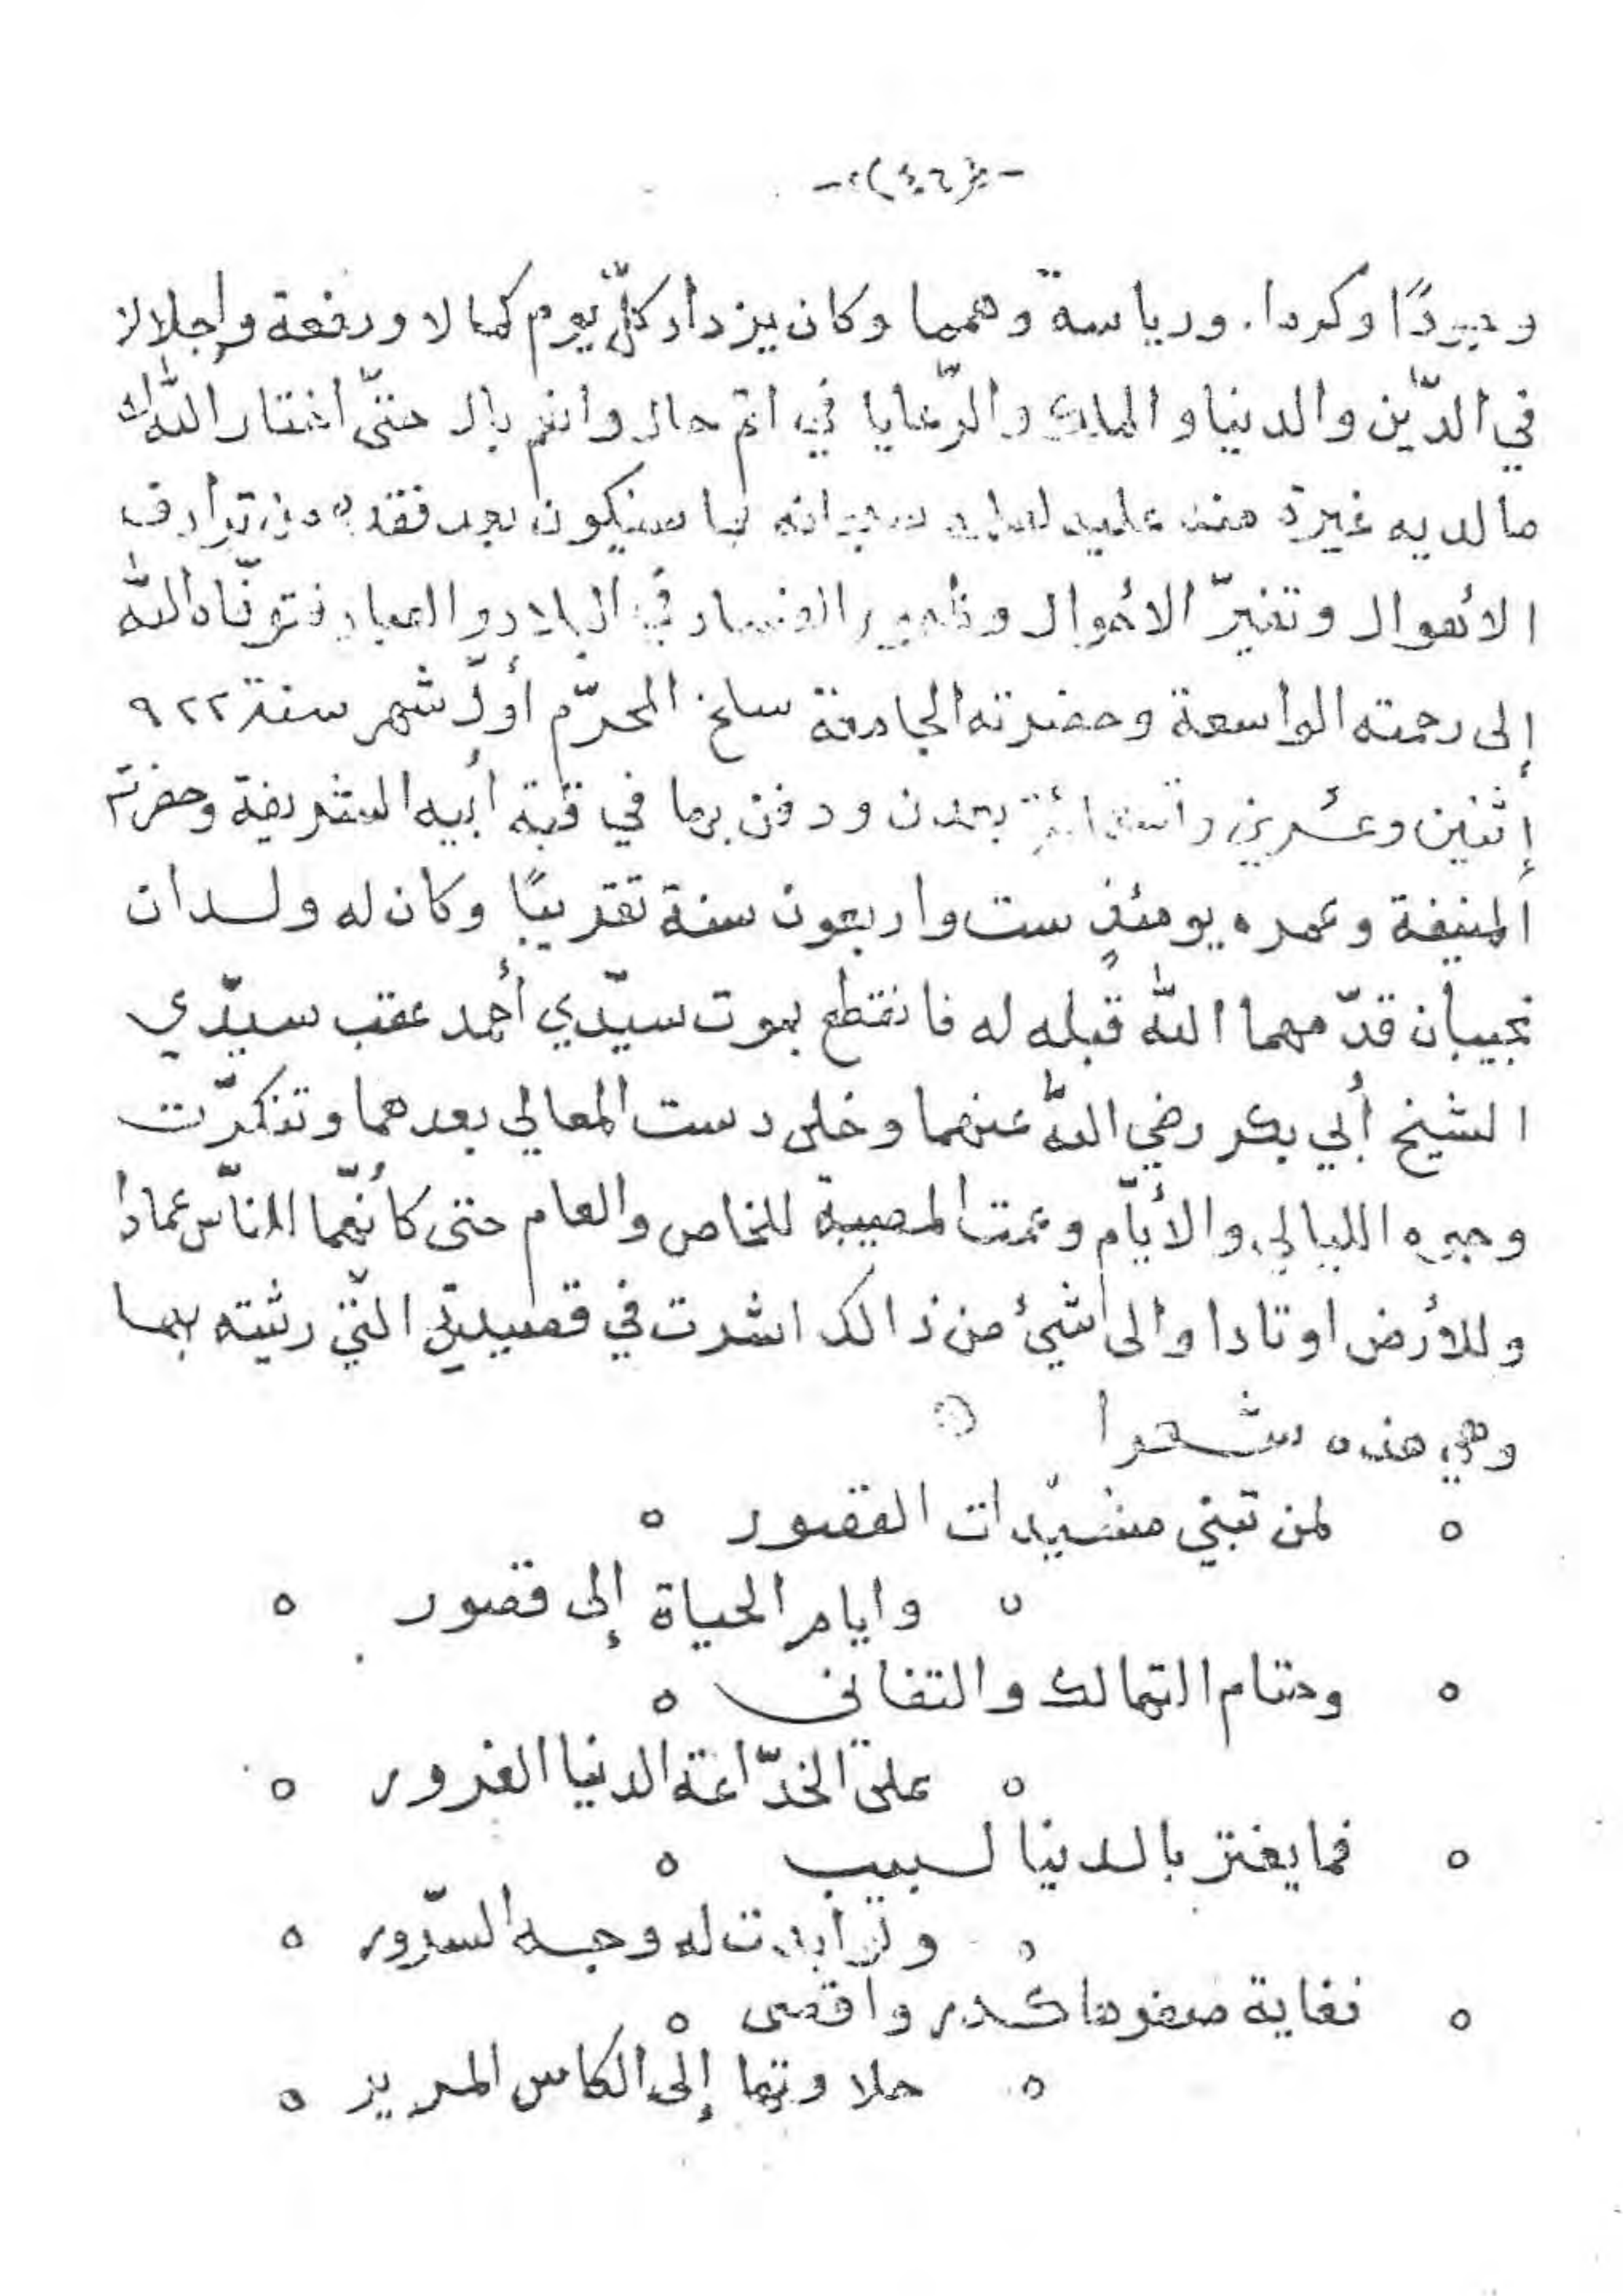 وجودًا وكرما. ورياسة وهمما وكان يزداد كلّ يوم كمالا ورفعة وإجلالا
في الدّين والدنيا و الملوك والرّعايا في اتم حال وانعم بال حتىّ اختار الله له
ما لديه غيرة منه عليه لعلمه سبحانه بما سيكون بعد فقده من ترادف
الأهوال وتغيّر الأحوال وظهور الفساد في البلاد والعباد فتوفّاه الله
إلى رحمته الواسعة وحضرته الجامعة سلخ المحرّم أوّل شهر سنة ٩٢٢
إثنين وعشرين وتسعمائة بعدن ودفن بها في قبة أبيه الشريفة وحضرته
المنيفة وعمره يومئذٍ ست واربعون سنة تقريبًا وكان له ولدان
نجيبان قدّمهما الله قبله له فانقطع بموت سيّدي أحمد عقب سيّدي
الشيخ أبي بكر رضي اللّه عنهما وخلى دست المعالي بعدهما وتنكرّت
وجوه الليالي والأيّام وعمت المصيبة للخاص والعام حتى كأنّهما للنّاس عمادا
وللأرض اوتادا والى شيئ من ذالك اشرت في قصيدتي التّي رثيته بها
وهي هذه شعرا
لمن تبني مشيّدات القصور
وايام الحياة إلى قصور
وحتام التهالك والتفانى
على الخدّاعة الدنيا الغرور
فما يغتر بالدنيا لبيب
ولو أبدت له وجه السّرور
فغاية صفوها كدر وأقصى
حلاوتها إلى الكاس المرير